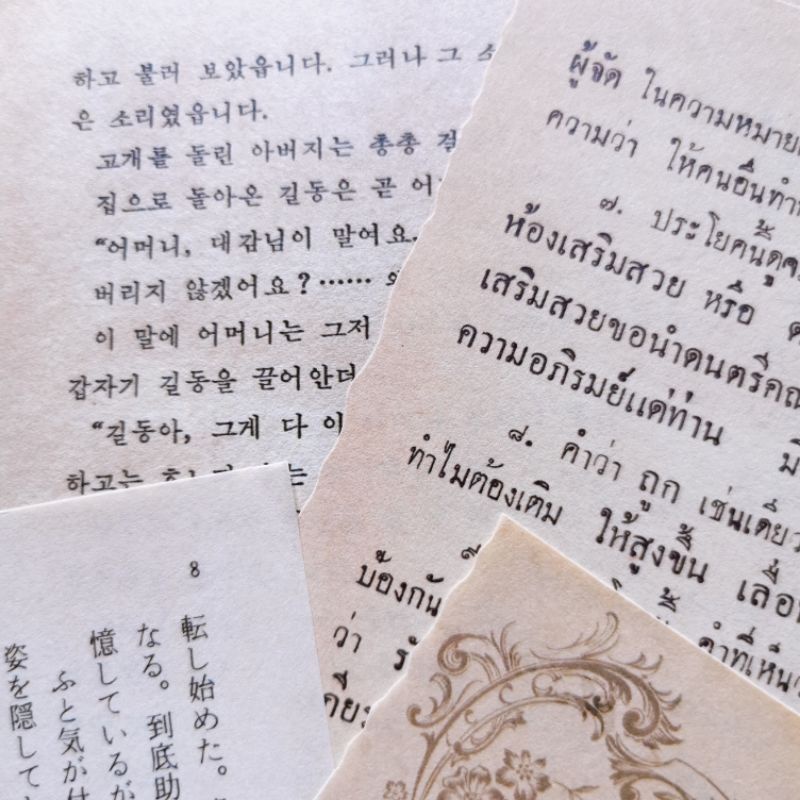 하고 불러 보았읍니다. 그러나 그 소
은 소리였읍니다.
고개를 돌린 아버지는 총총 걸
집으로 돌아온 길동은 곧 어
“어머니, 대감님이 말여요.
버리지 않겠어요?……
이 말에 어머니는 그저
갑자기 길동을 끌어안더
“길동아, 그게 다 이
하고는
ผู้จัด ในความหมาย
ความว่า ให้คนอื่นทำ
๗. ประโยคนี้ดู
ห้องเสริมสวย หรือ
เสริมสวยขอนำดนตรีคณ
ความอภิรมย์แด่ท่าน มี
๘. คำว่า ถูก เช่นเดียว
ทำไมต้องเติม ให้สูงขึ้น เลื่อ
บ้องกัน
ว่า
คำที่เห็น
8
転し始めた。
なる。到底助
憶しているが
ふと気が付
姿を隠して